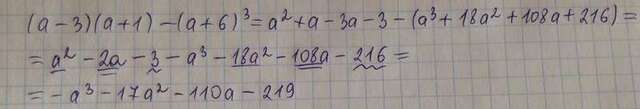 (a-3)(a+1)-(a+6)³=a²+a-3a-3-(a³+18a²+108a+216)=
=a²-2a-3-a³-18a²-108a-216=
=-a³-17a²-110a-219